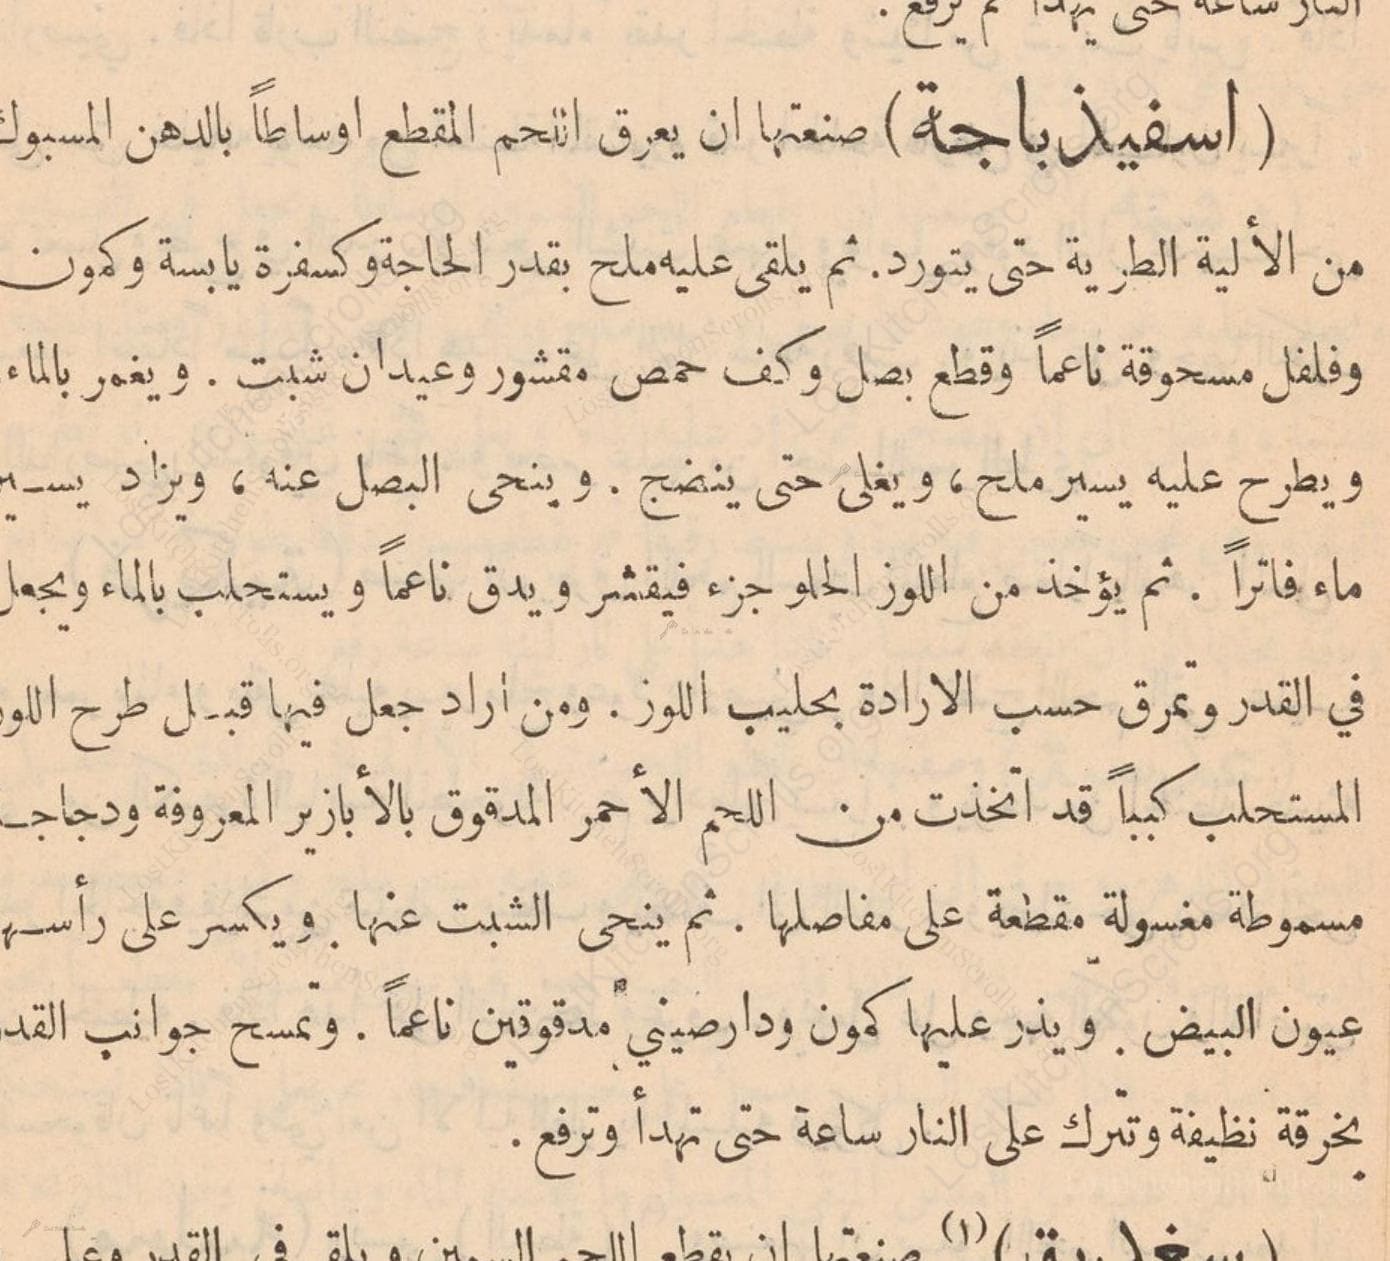 النار ساعة حتى يهدأ ثم يرفع .
( اسفيذباجة ) صنعتها ان يعرق اللحم المقطع اوساطاً بالدهن المسبوك
من الألية الطرية حتى يتورد. ثم يلقى عليه ملح بقدر الحاجة وكسفرة يابسة وكمون
وفلفل مسحوقة ناعماً وقطع بصل وكف حمص مقشور وعيدان شبت . ويغمر بالماء
ويطرح عليه يسير ملح ، ويغلى حتى ينضج . وينحى البصل عنه ، ويزاد يسير
ماء فاتراً . ثم يؤخذ من اللوز الحلو جزء فيقشر ويدق ناعماً ويستحلب بالماء ويجعل
في القدر وتمرق حسب الارادة بحليب اللوز . ومن اراد جعل فيها قبل طرح اللوز
المستحلب كبباً قد اتخذت من اللحم الأحمر المدقوق بالأبازير المعروفة ودجاجـ
مسموطة مغسولة مقطعة على مفاصلها . ثم ينحى الشبت عنها . ويكسر على رأسها
عيون البيض . ويذر عليها كمون ودارصيني مدقوقين ناعماً . وتمسح جوانب القدر
بخرقة نظيفة وتترك على النار ساعة حتى تهدأ وترفع .
(١) صنعتها ان يقطع اللحم السمين ويلقى في القدر وعلى
LostKitchenScrolls.org